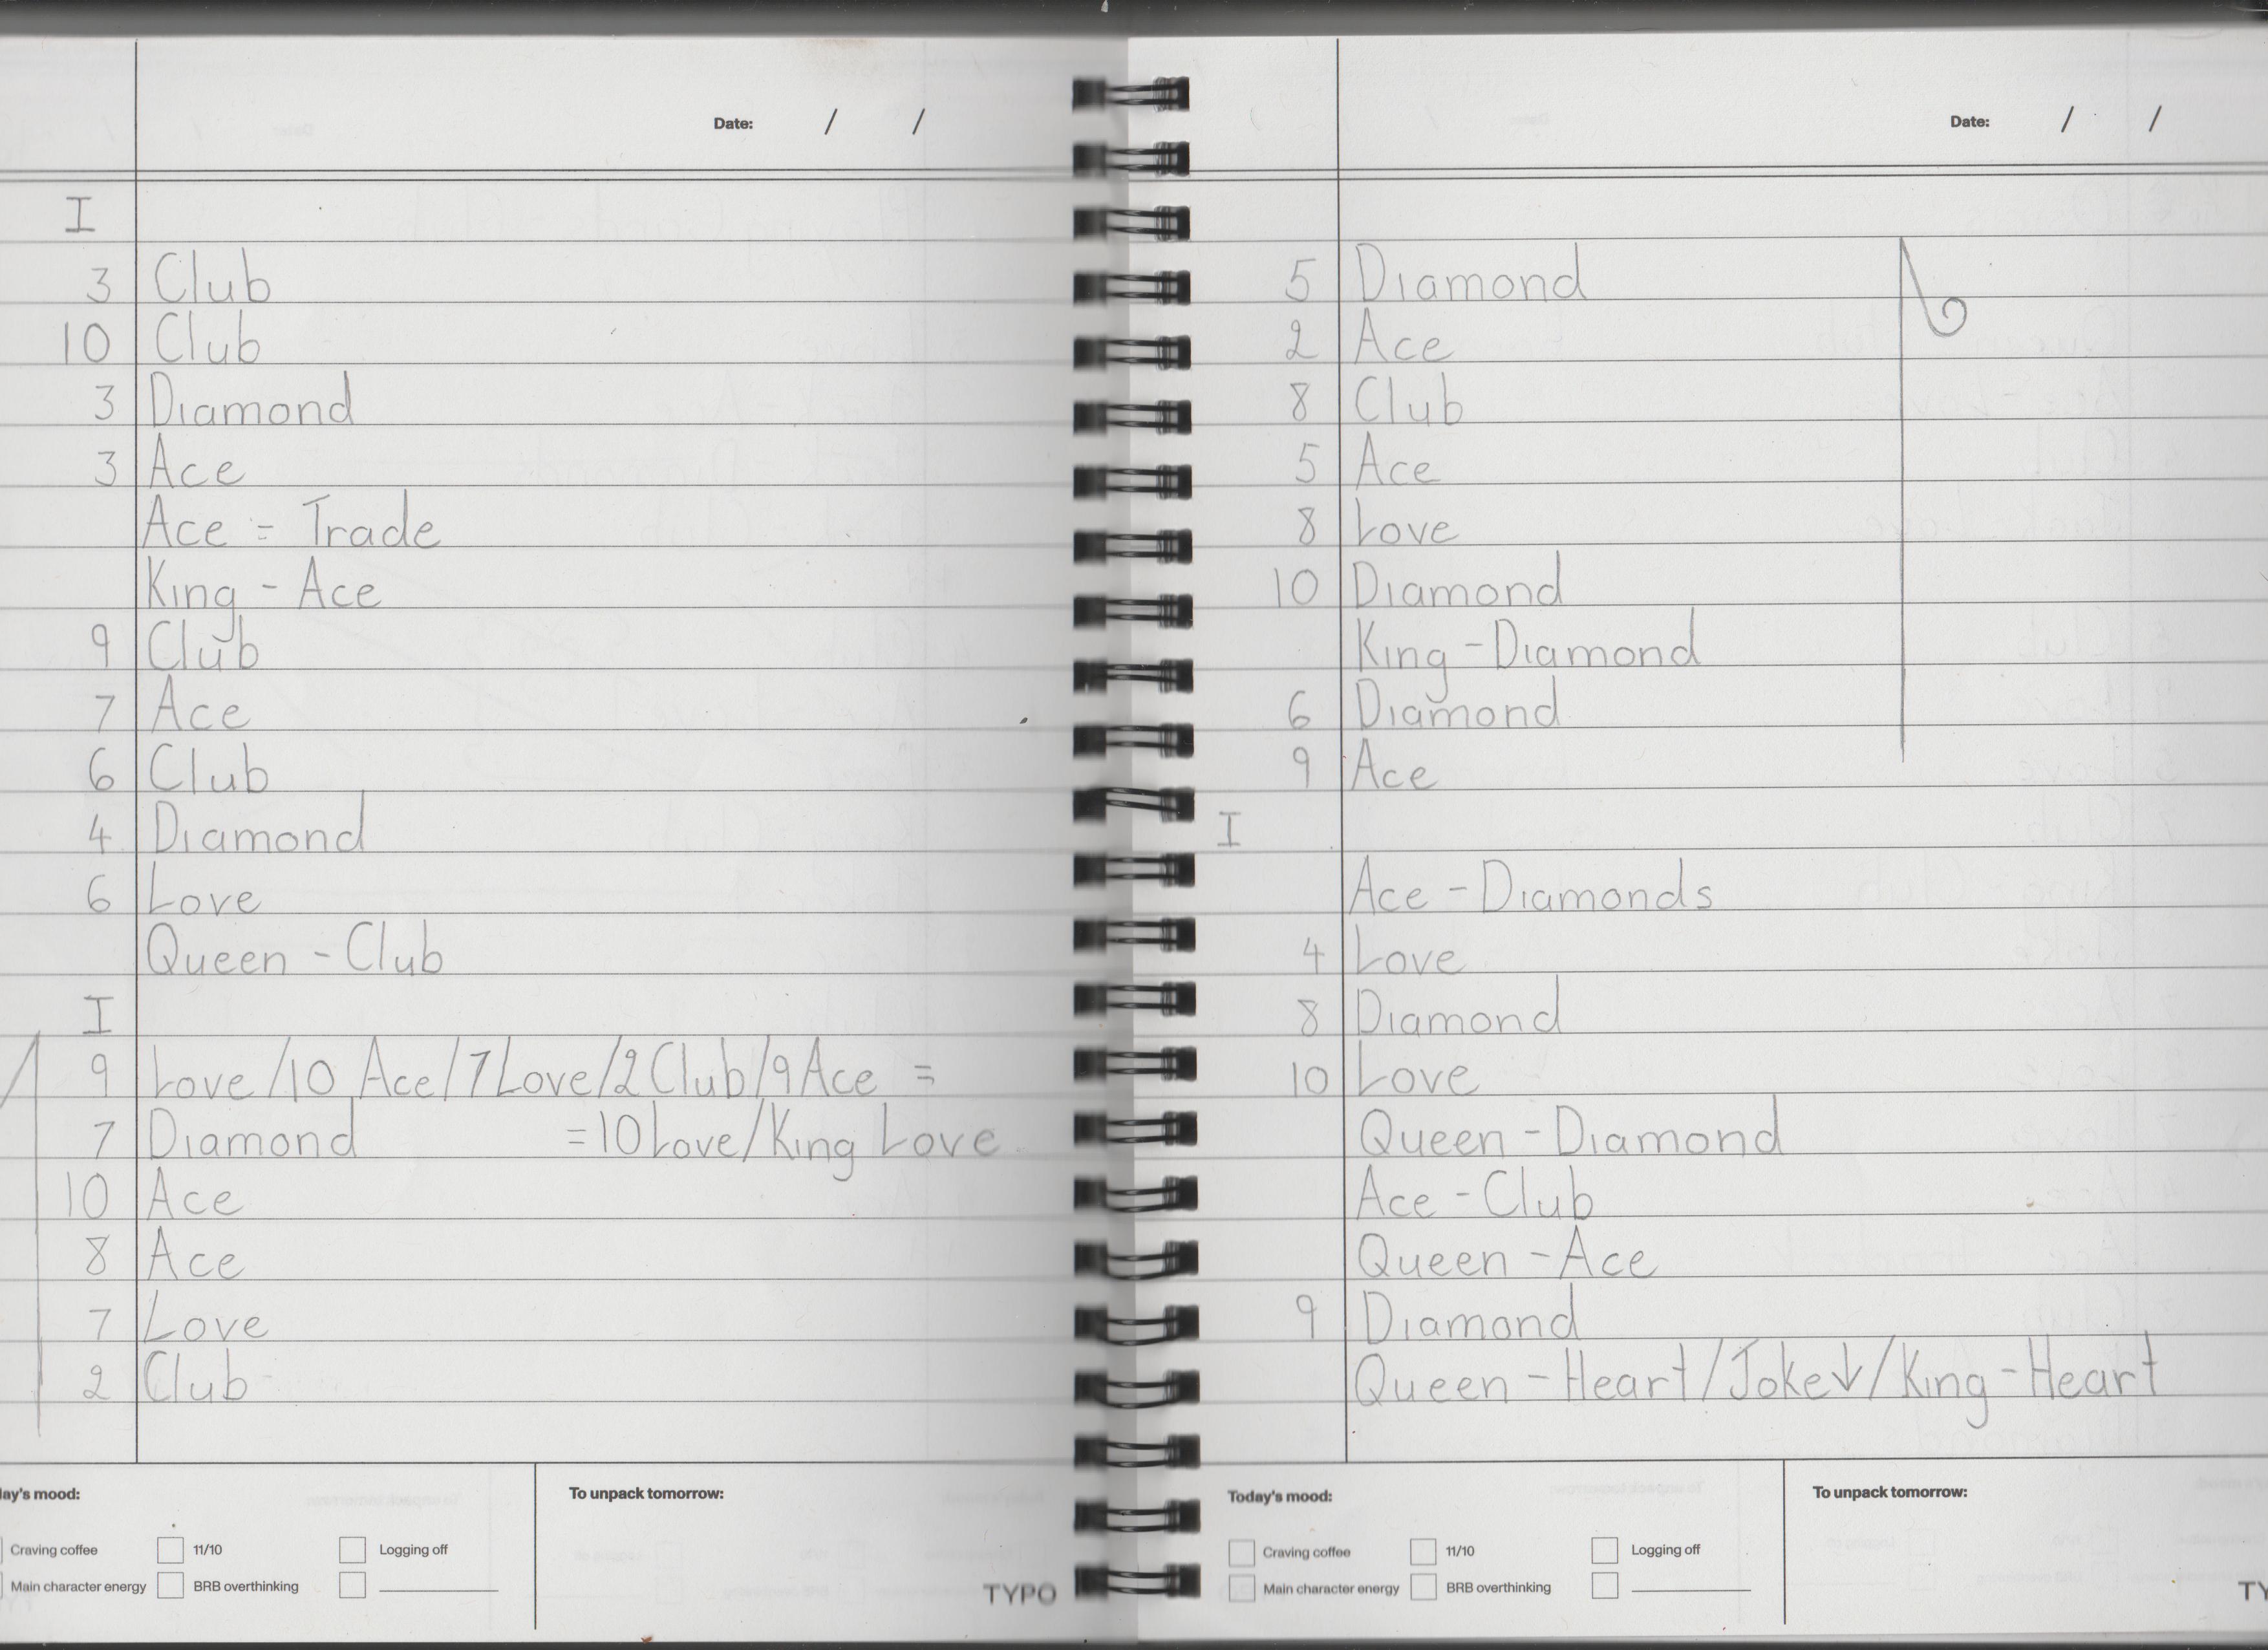 Date: / /
I
3 Club
10 Club
3 Diamond
3 Ace
Ace = Trade
King - Ace
9 Club
7 Ace
6 Club
4 Diamond
6 Love
Queen - Club
I
9 Love/10 Ace/7 Love/2 Club/9 Ace =
7 Diamond =10 Love/King Love
10 Ace
8 Ace
7 Love
2 Club
ay's mood:
To unpack tomorrow:
Craving coffee 11/10 Logging off
Main character energy BRB overthinking
TYPO
Date: / /
5 Diamond
2 Ace
8 Club
5 Ace
8 Love
10 Diamond
King - Diamond
6 Diamond
9 Ace
I
Ace - Diamonds
4 Love
8 Diamond
10 Love
Queen - Diamond
Ace - Club
Queen - Ace
9 Diamond
Queen - Heart/Joker/King - Heart
Today's mood:
To unpack tomorrow:
Craving coffee 11/10 Logging off
Main character energy BRB overthinking
TY